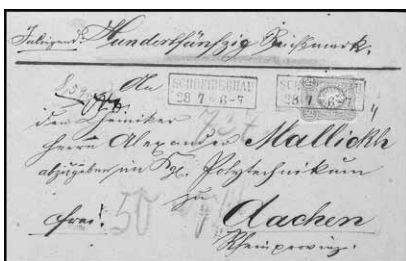 Hundertfünfzig Reichsmark.
An
SCHREIBERHAU
28 7 6-7
28 7 6-7
den Chemiker
Herrn Alexander Mallickh
abzugeben im Kgl. Polytechnikum
zu
frei! 50
Aachen
Rheinprovinz.